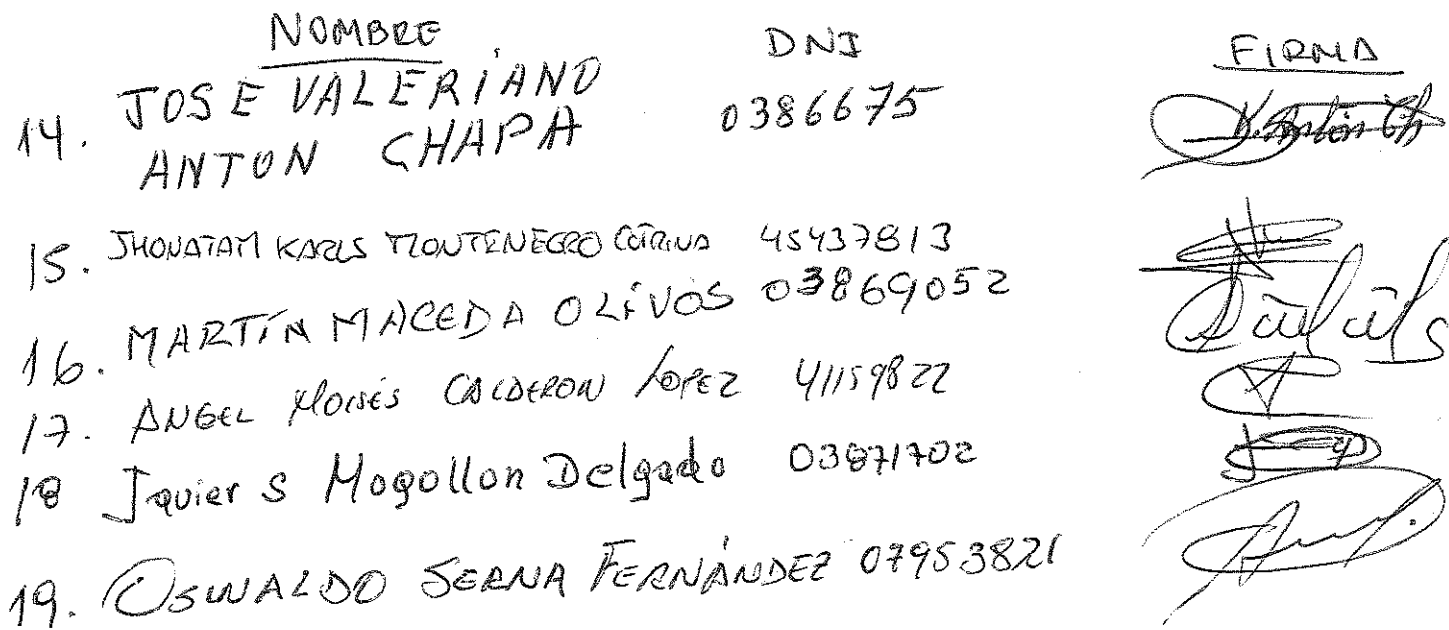 NOMBRE DNI FIRMA
14. JOSE VALERIANO 0386675
ANTON CHAPA
15. JHONATAM KARLS MONTENEGRO COTRINA 45437813
16. MARTÍN MACEDA OLIVOS 03869052
17. ANGEL MOISÉS CALDERON LOPEZ 41159822
18 Javier S Mogollon Delgado 03871702
19. OSWALDO SERNA FERNÁNDEZ 07953821